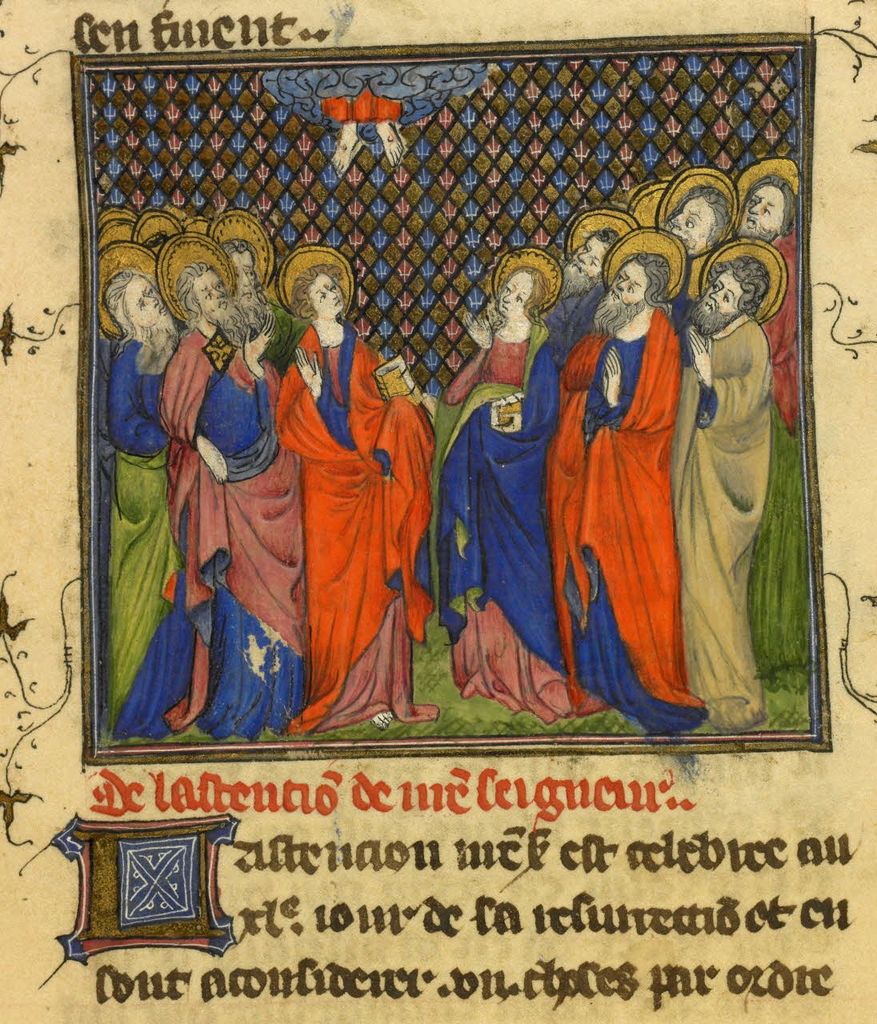 sen suient..
De lastentiõ de nr̃e seigneur..
Lastencion nr̃e s̃ est celebree au
xlͤ. iour de sa resurrectiõ et en
sont a considerer .vii. choses par ordre